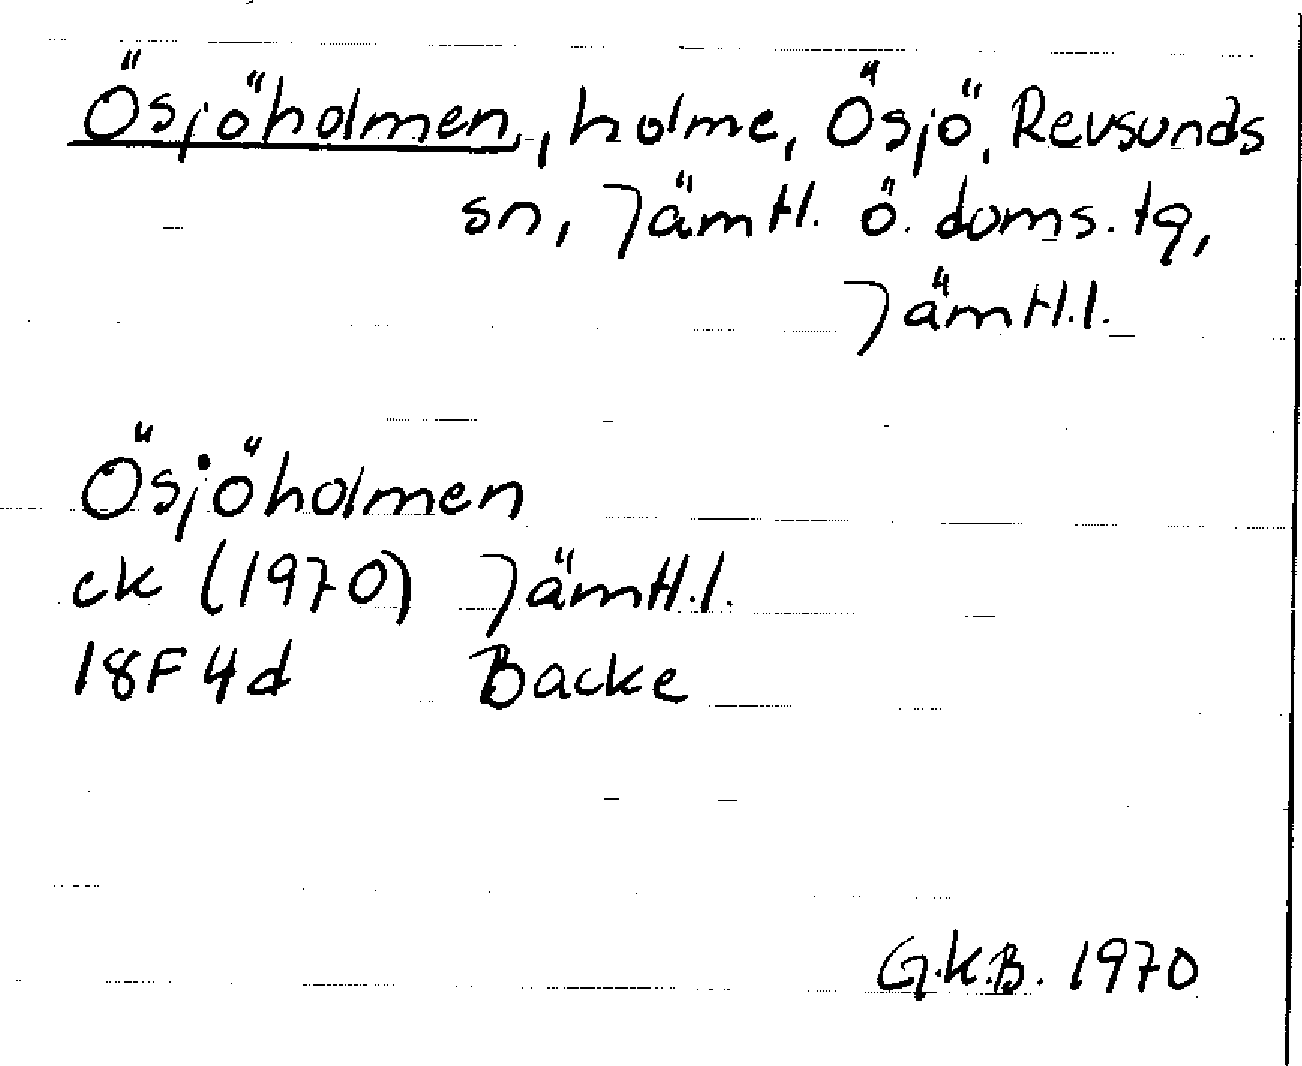 Ösjöholmen, holme, Ösjö, Revsunds
sn, Jämtl. ö. doms. tg,
Jämtl.l.
Ösjöholmen
ek (1970) Jämtl.l.
18F4d Backe
G.K.B. 1970